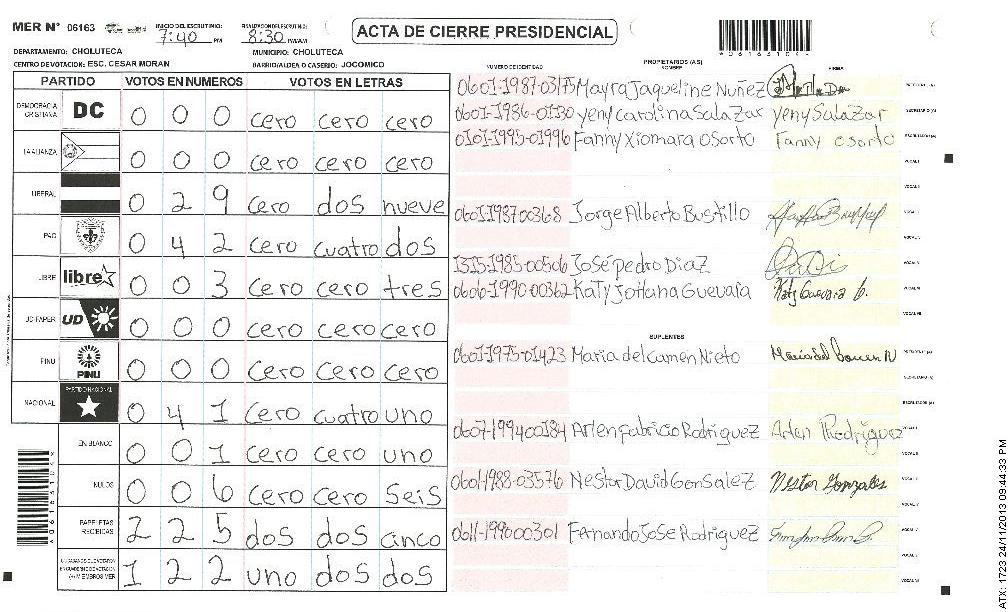 MER Nº 06163 INICIO DEL ESCRUTINIO: 7:40 PM FINALIZACION DEL ESCRUTINIO: 8:30 PM/AM
ACTA DE CIERRE PRESIDENCIAL
*06163104*
DEPARTAMENTO: CHOLUTECA MUNICIPIO: CHOLUTECA
CENTRO DE VOTACION: ESC. CESAR MORAN BARRIO/ALDEA O CASERIO: JOCOMICO
PARTIDO VOTOS EN NUMEROS VOTOS EN LETRAS
DEMOCRACIA CRISTIANA DC 0 0 0 cero cero cero
LA ALIANZA 0 0 0 cero cero cero
LIBERAL 0 2 9 cero dos nueve
PAC 0 4 2 cero cuatro dos
LIBRE libre 0 0 3 cero cero tres
UD-FAPER UD 0 0 0 cero cero cero
PINU PINU 0 0 0 cero cero cero
NACIONAL PARTIDO NACIONAL 0 4 1 cero cuatro uno
EN BLANCO 0 0 1 cero cero uno
NULOS 0 0 6 cero cero seis
PAPELETAS RECIBIDAS 2 2 5 dos dos cinco
(+) MIEMBROS MER 1 2 2 uno dos dos
PROPIETARIOS (AS)
NUMERO DE IDENTIDAD NOMBRE FIRMA
0601-1987-03175 Mayra Jaqueline Nuñez
0601-1986-01130 yeny carolina Salazar yeny Salazar
0101-1995-01996 Fanny Xiomara Osorto Fanny Osorto
0601-1987-00368 Jorge Alberto Bustillo
1315-1985-00506 José pedro Diaz
0606-1990-00362 Katy Johana Guevara Katy Guevara G.
SUPLENTES
0601-1975-01423 Maria del carmen Nieto Maria del Carmen N
0607-1994-00184 Arlen fabricio Rodriguez Arlen Rodriguez
0601-1988-03576 Nestor David Gonsalez Nestor Gonzales
0611-1990-00301 Fernando Jose Rodriguez
ATX: 1723 24/11/2013 09:44:33 PM